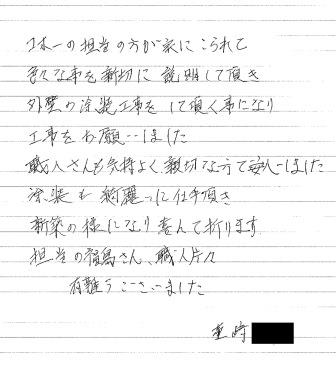 日本一の担当の方が家にこられて
色々な事を親切に説明して頂き
外壁の塗装工事をして頂く事になり
工事をお願いしました
職人さんも気持よく親切な方で安心しました
塗装も綺麗に仕上げ頂き
新築の様になり喜んで折ります
担当の福島さん、職人方々
有難うございました
重崎